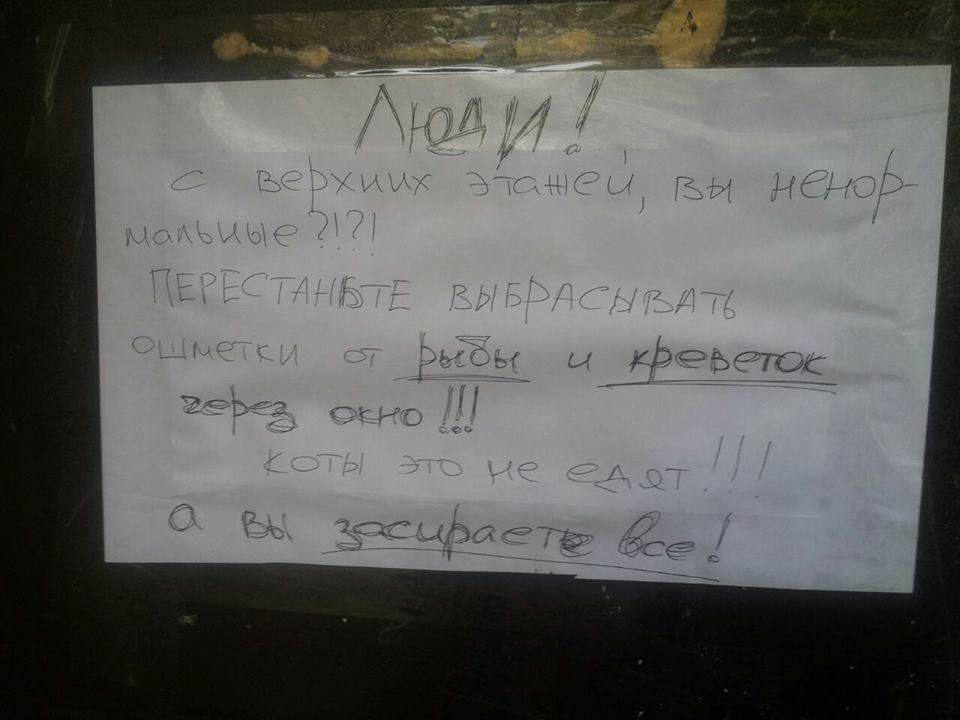 Люди!
с верхних этажей, вы ненор-
мальные?!?!
ПЕРЕСТАНЬТЕ ВЫБРАСЫВАТЬ
ошметки от рыбы и креветок
через окно!!!
коты это не едят!!!
а вы засираете все!